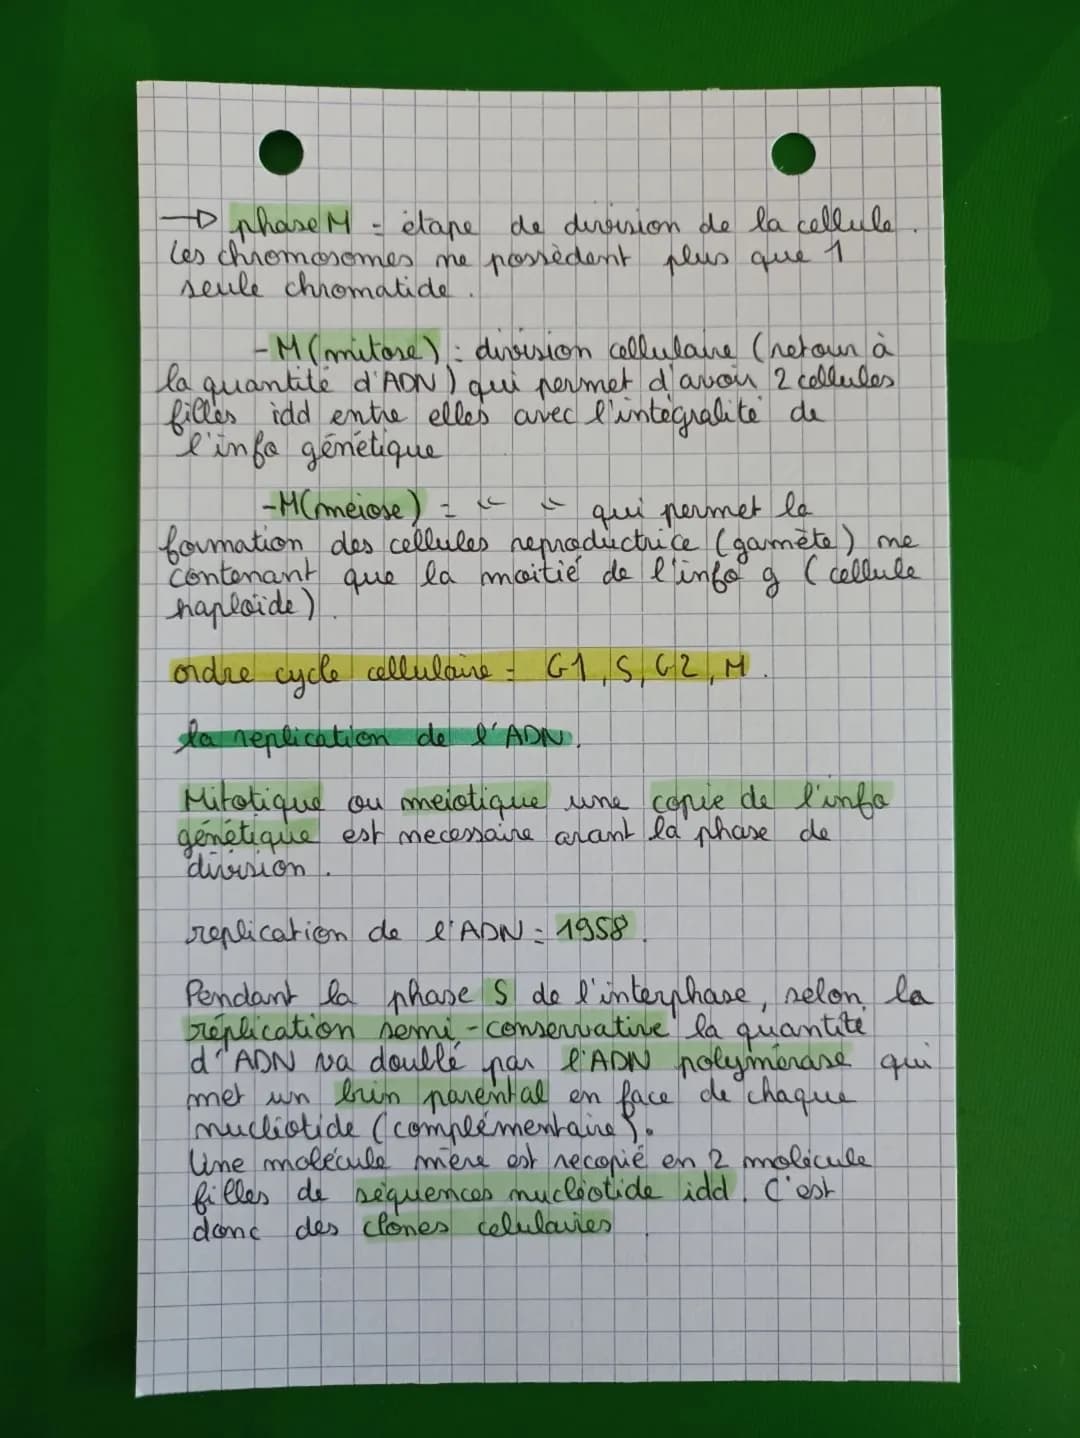 → phase M = étape de division de la cellule.
Les chromosomes ne possèdent plus que 1
seule chromatide.
- M (mitose) : division cellulaire (retour à
la quantité d'ADN) qui permet d'avoir 2 cellules
filles idd entre elles avec l'intégralité de
l'info génétique
- M (méiose) = " " qui permet la
formation des cellules reproductrice (gamète) ne
contenant que la moitié de l'info g (cellule
haploïde).
ordre cycle cellulaire = G1, S, G2, M.
la replication de l'ADN.
Mitotique ou meiotique une copie de l'info
génétique est necessaire avant la phase de
division.
replication de l'ADN = 1958.
Pendant la phase S de l'interphase, selon la
réplication semi-conservative la quantité
d'ADN va doublé par l'ADN polymérase qui
met un brin parental en face de chaque
nucliotide (complémentaire).
Une molécule mère est recopié en 2 molécule
filles de séquences nucléotide idd. C'est
donc des clones celulaires